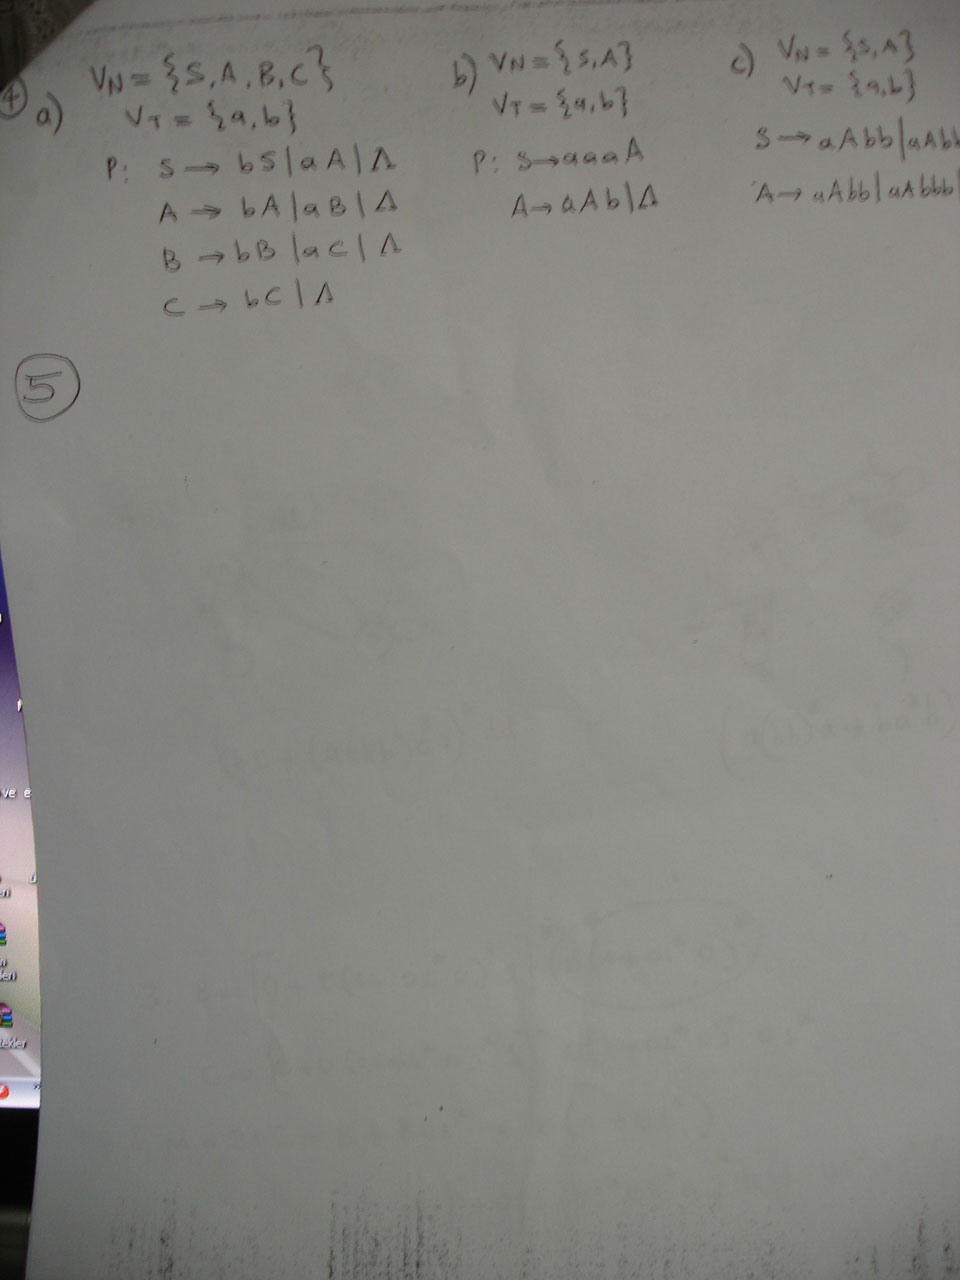 4
a) V_N = {S, A, B, C}
V_T = {a, b}
P: S → bS | aA | Λ
A → bA | aB | Λ
B → bB | aC | Λ
C → bC | Λ
b) V_N = {S, A}
V_T = {a, b}
P: S → aaaA
A → aAb | Λ
c) V_N = {S, A}
V_T = {a, b}
S → aAbb | aAbb
A → aAbb | aAbbb |
5
ve e